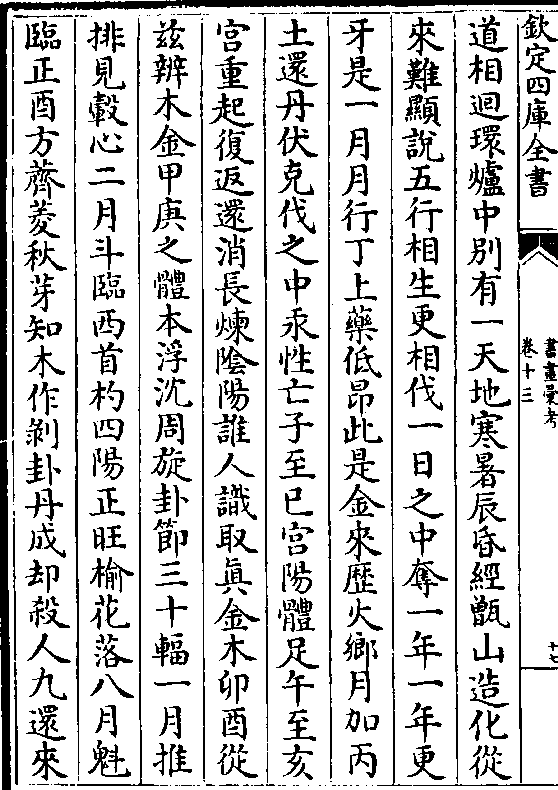 欽定四庫全書
書畫彙考
卷十三
十七
道相迴環爐中別有一天地寒暑辰昏經甑山造化從
來難顯說五行相生更相伐一日之中奪一年一年更
牙是一月月行丁上藥低昂此是金來歴火鄉月加丙
土還丹伏克伐之中汞性亡子至巳宫陽體足午至亥
宫重起復返還消長煉陰陽誰人識取真金木卯酉從
兹辨木金甲庚之體本浮沈周旋卦節三十輻一月推
排見轂心二月斗臨西首杓四陽正旺榆花落八月魁
臨正酉方薺菱秋芽知木作剝卦丹成却殺人九還來